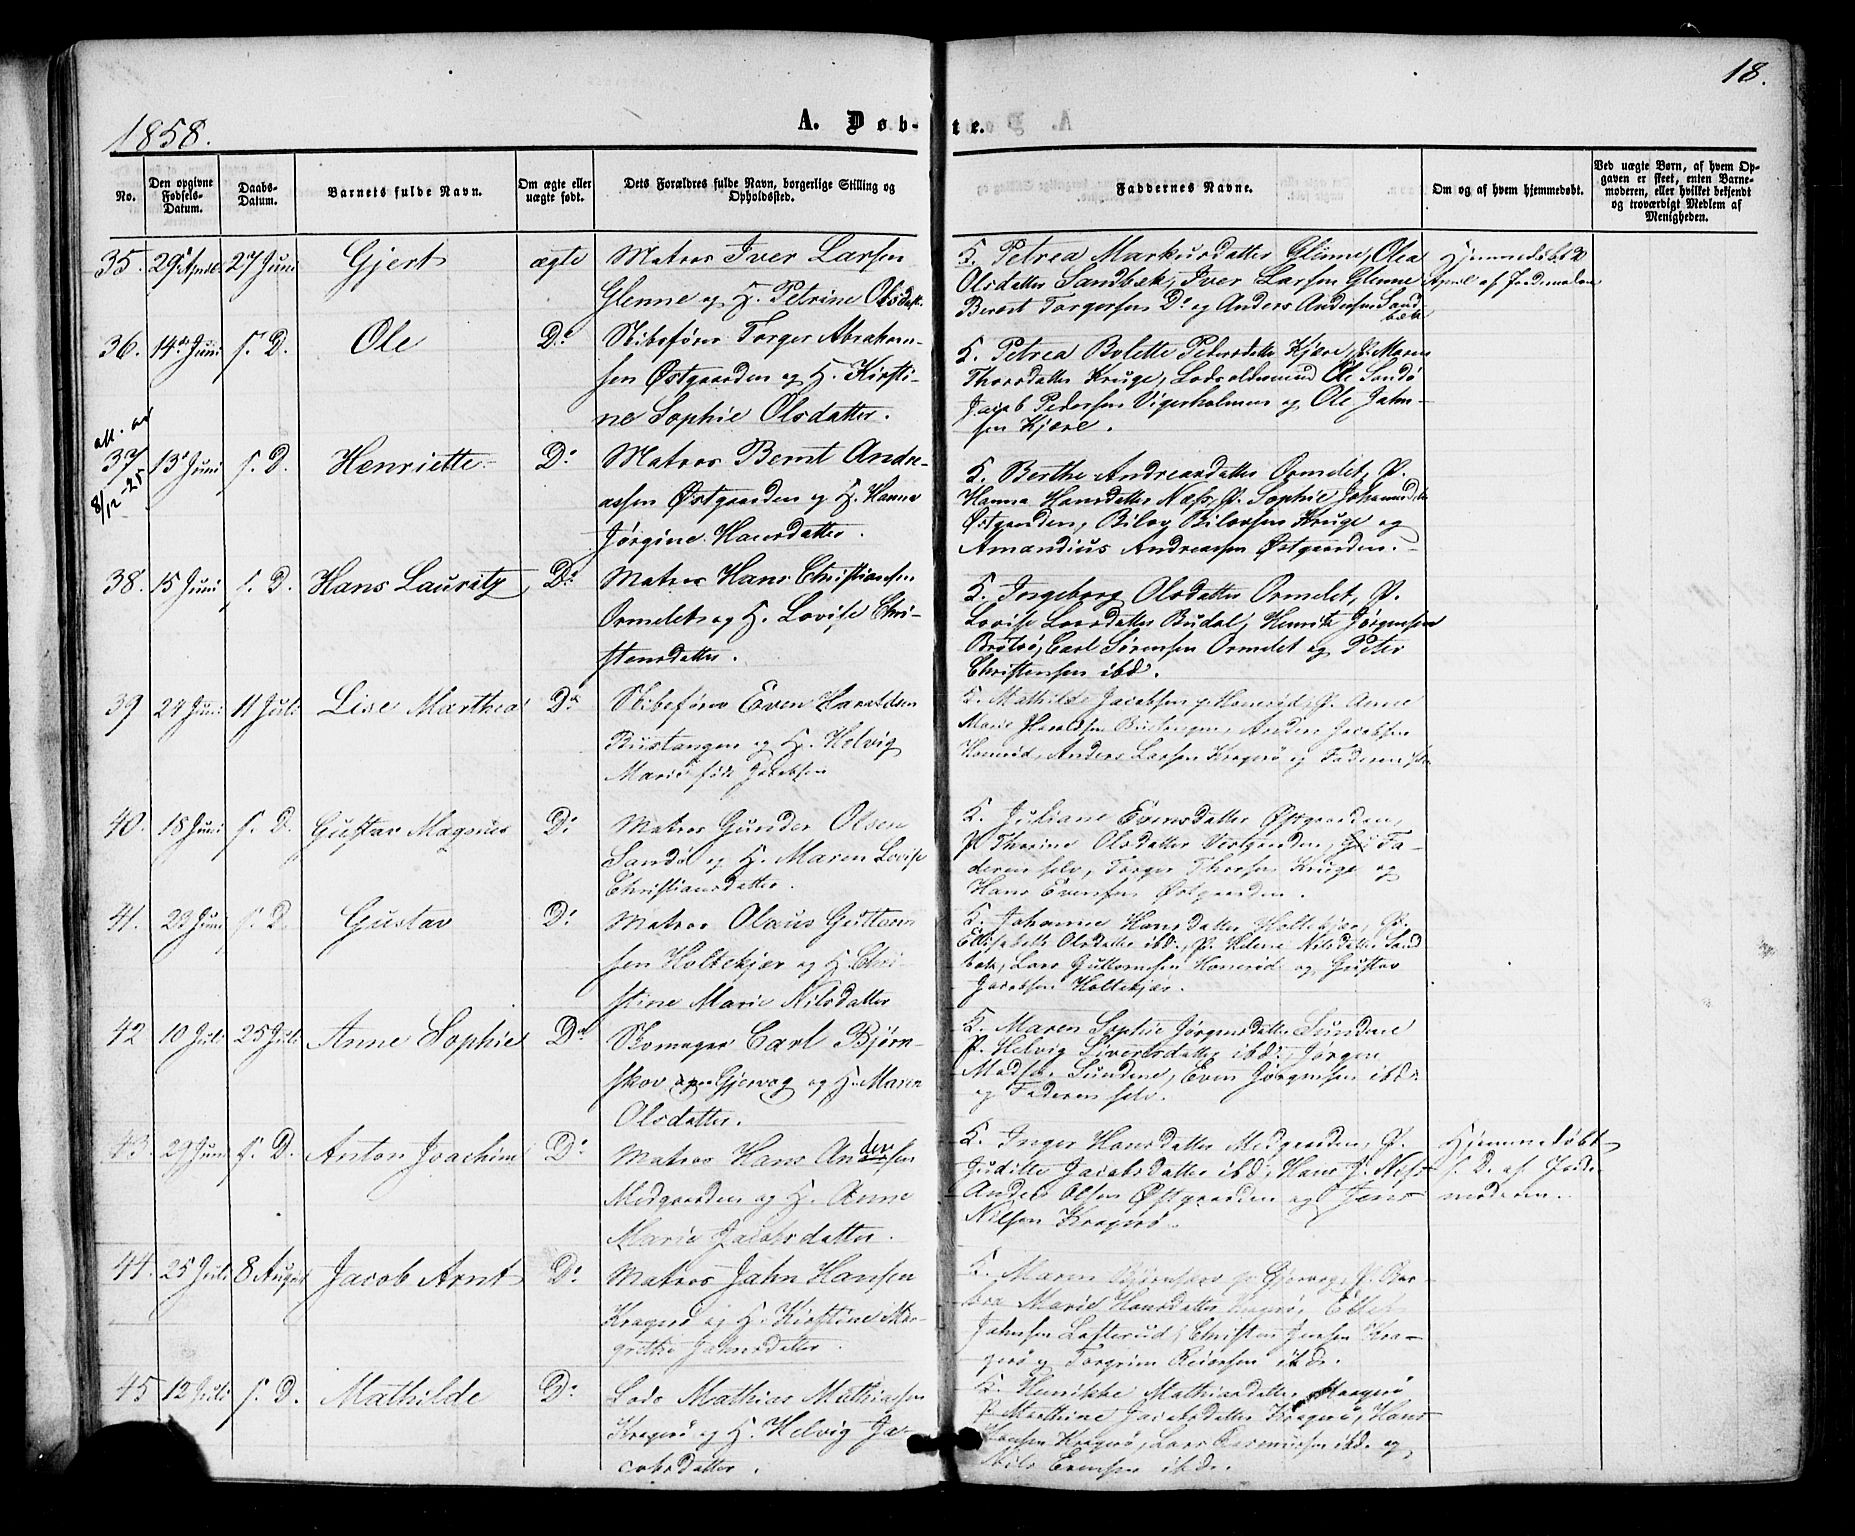 18.
1858.
A. Døb-te.
No.
Den opgivne Fødsels-Datum.
Daabs-Datum.
Barnets fulde Navn.
Om ægte eller uægte født.
Dets Forældres fulde Navn, borgerlige Stilling og Opholdssted.
Faddernes Navne.
Om og af hvem hjemmedøbt.
Ved uægte Børn, af hvem Opgaven er skeet, enten Barnemoderen, eller hvilket bekjendt og troværdigt Medlem af Menigheden.
35. 29 April 27 Juni Gjert ægte Matros Iver Larsen
Glenne og H. Petrine Olsdatt.
K. Petrea Markusdatter Glenne, Olea
Olsdatter Sandbæk, Iver Larsen Glenne
Berent Torgersen Do og Anders Andersen Sand
bæk
Hjemmedøbt 2
April af Jordemoderen
36. 14de Juni s. D. Ole Do Skibsfører Torger Abraham-
sen Østgaarden og H. Kirsti-
ne Sophie Olsdatter.
K. Petrea Bolette Pedersdatter Kjære, P. Maren
Thorsdatter Kruge, Lodsoldermand Ole Sandø
Jacob Pedersen Vigerholmen og Ole Jahn-
sen Kjære.
att. ad
8/12-25
37 13de Juni s. D. Henriette Do Matros Bernt Andre-
assen Østgaarden og H. Hanna
Jørgine Hansdatter.
K. Berthe Andreasdatter Ormelet, P.
Hanna Hansdatter Næss, P. Sophie Johannesdtr
Østgaarden, Biløv Biløvsen Kruge og
Amandius Andreassen Østgaarden.
38. 15 Juni s. D. Hans Lauritz Do Matros Hans Christiansen
Ormelet og H. Lovise Chri-
stensdatter.
K. Ingeborg Olsdatter Ormelet, P.
Lovise Larsdatter Budal, Henrik Jørgensen
Brøtsø, Carl Sørensen Ormelet og Peter
Christensen ibd.
39 24 Juni 11 Juli Lise Marthea Do Skibsfører Even Haraldsen
Bustangen og H. Helvig
Marie født Jacobsen
K. Mathilde Jacobsen p. Honerød, P. Anne
Marie Haraldsen Bustangen, Anders Jacobsen
Honerød, Anders Larsen Kragerø og Faderen selv
40. 18 Juni s. D. Gustav Magnus Do Matros Gunder Olsen
Sandø og H. Maren Lovise
Christiansdatter.
K. Juliane Evensdatter Østgaarden,
P. Thorine Olsdatter Vestgaarden, Fa-
deren selv, Torger Thorsen Kruge og
Hans Evensen Østgaarden.
41. 23 Juni s. D. Gustav Do Matros Olaus Guttorm
sen Holtekjær og H. Chri-
stine Marie Nilsdatter
K. Johanne Hansdatter Holtekjær, P.
Elisabeth Olsdatter ibd., P. Helene Nilsdatter Sand
bæk, Lars Guttormsen Honerød og Gustav
Jacobsen Holtekjær.
42 10 Juli 25 Juli Anne Sophie Do Skomager Carl Bjørn-
skov Gjervaag og H. Maren
Olsdatter.
K. Maren Sophie Jørgensdatter Sundene
P. Helvig Sivertsdatter ibd., Jørgen
Madsen Sundene, Even Jørgensen ibd.
og Faderen selv.
43. 29 Juni s. D. Anton Joachim Do Matros Hans Andersen
Medgaarden og H. Anne
Marie Jacobsdatter.
K. Inger Hansdatter Medgaarden, P.
Juditte Jacobsdatter ibd., Hans J. Næss
Anders Olsen Østgaarden og Jens
Nilsen Kragerø.
Hjemmedøbt
s. D. af Jorde-
moderen.
44. 25 Juli 8 August Jacob Arnt Do Matros Jahn Hansen
Kragerø og H. Kirstine Mar-
grethe Jahnsdatter.
K. Maren Bjørnskov p. Gjervaag, P. Bar-
bra Marie Hansdatter Kragerø, Ellef
Jahnsen Lofterud, Christen Jensen Kra-
gerø og Torgrim Reiersen ibd.
45 12 Juli s. D. Mathilde Do Lods Mathias Mathiassen
Kragerø og H. Helvig Ja-
cobsdatter.
K. Henrikke Mathiasdatter Kragerø
P. Marthine Jacobsdatter Kragerø, Hans
Hansen Kragerø, Lars Rasmussen ibd. og
Nils Evensen ibd.